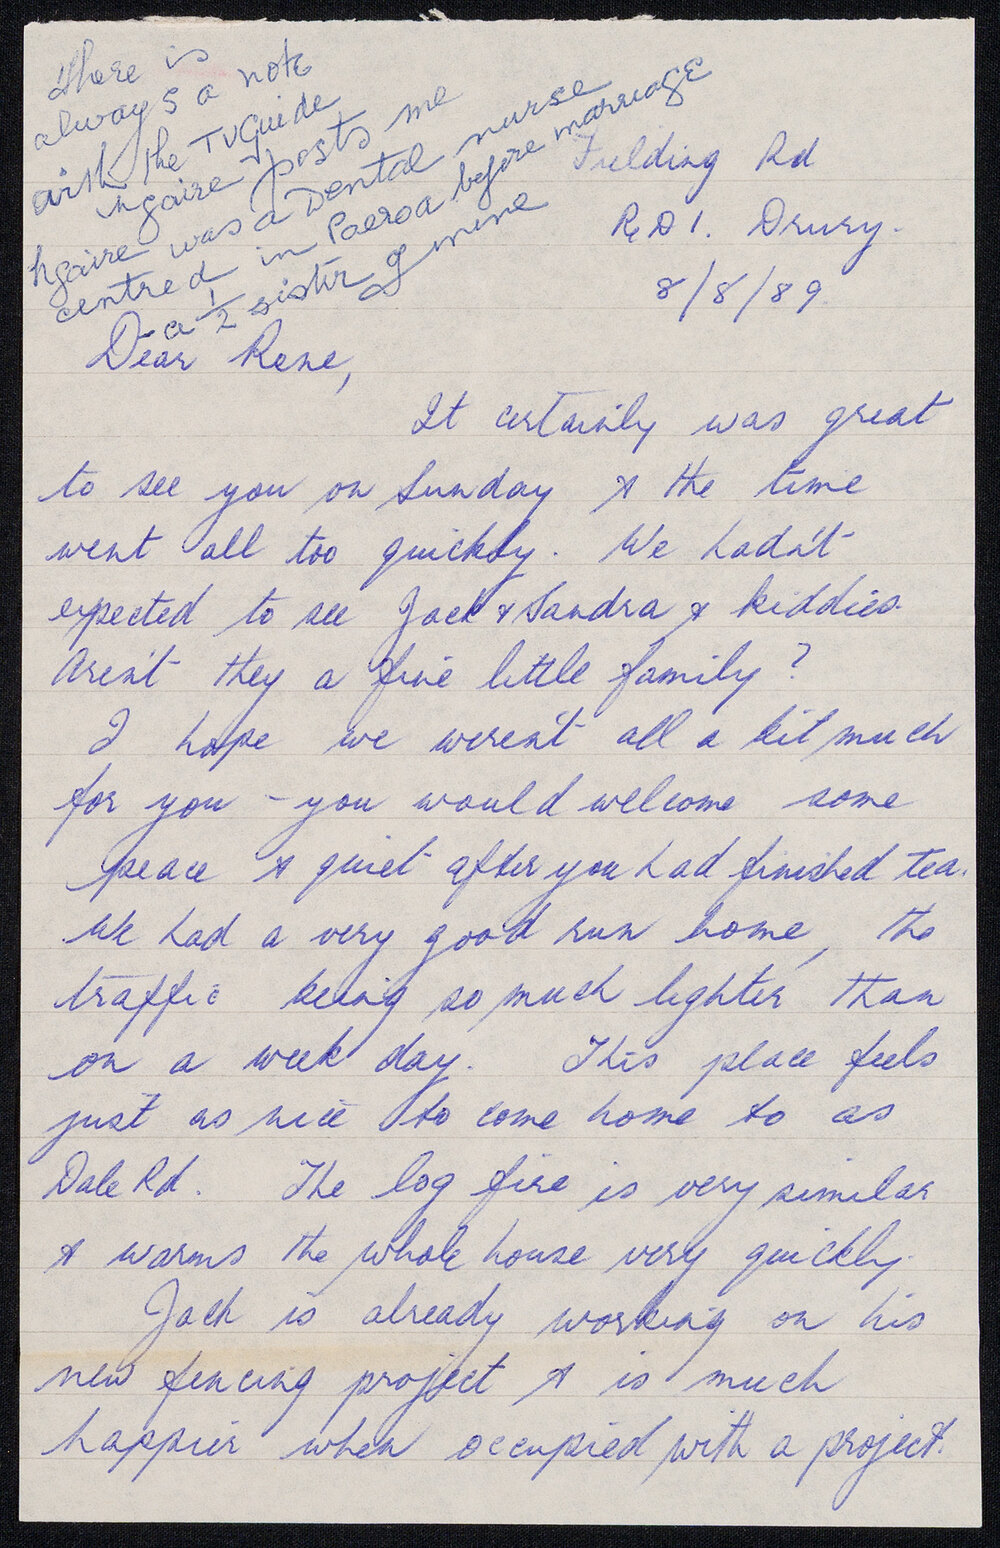 There is
always a note
with the TVGuide
Ngaire posts me
Ngaire was a Dental nurse
centred in Paeroa before marriage
a ½ sister of mine
Fielding Rd
R.D 1. Drury.
8/8/89
Dear Rene,
It certainly was great
to see you on Sunday & the time
went all too quickly. We hadn't
expected to see Jack & Sandra & kiddies.
Aren't they a fine little family?
I hope we weren't all a bit much
for you - you would welcome some
peace & quiet after you had finished tea.
We had a very good run home, the
traffic being so much lighter than
on a week day. This place feels
just as nice to come home to as
Dale Rd. The log fire is very similar
& warms the whole house very quickly.
Jack is already working on his
new fencing project & is much
happier when occupied with a project.